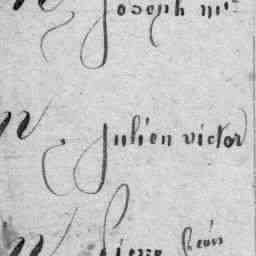 N, Joseph m
N, Julien victor
N Pierre